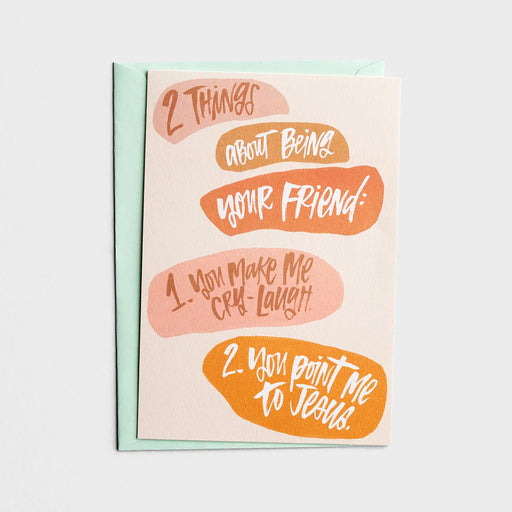 2 Things
about Being
your Friend:
1. you make me
cry-laugh.
2. you point me
to Jesus.